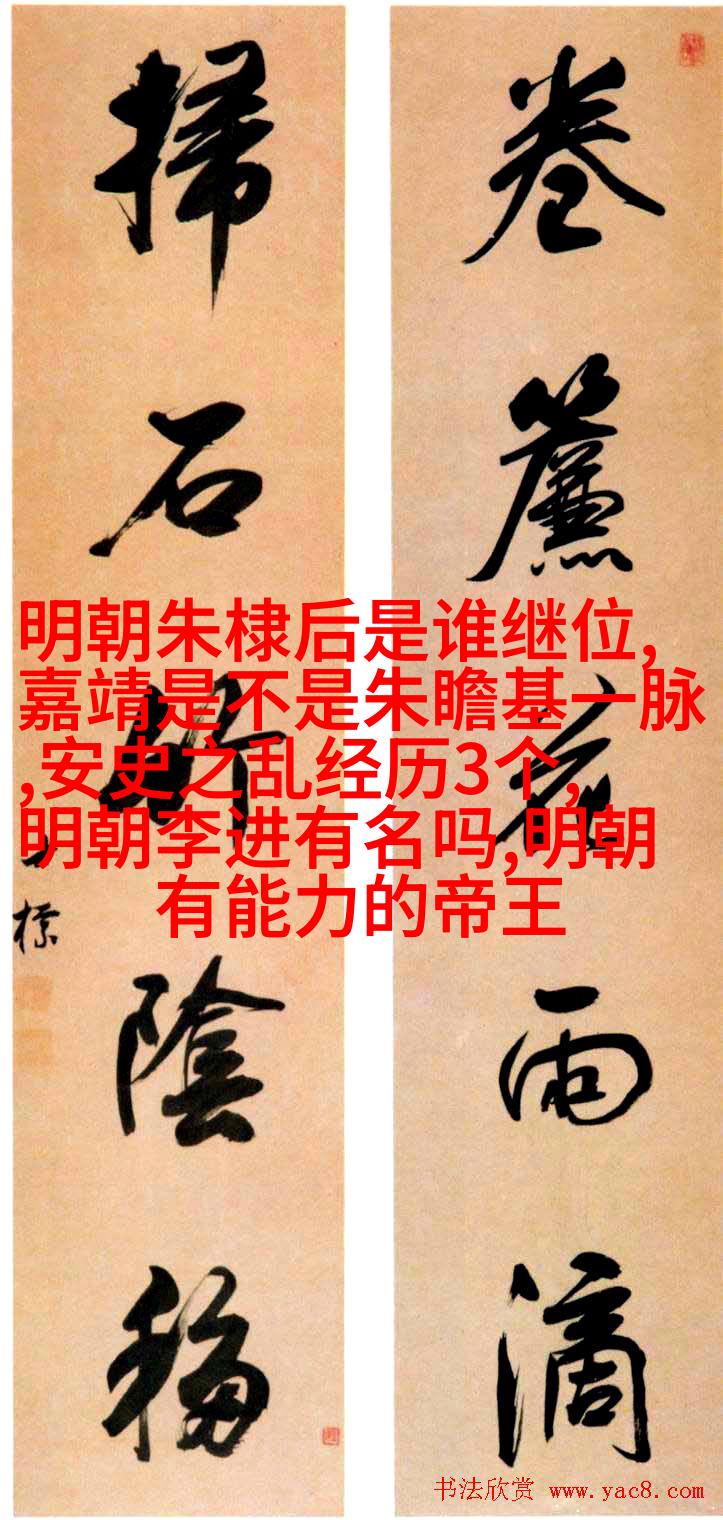 卷簾花雨滴
掃石竹陰移
士標
明朝朱棣后是谁继位,
嘉靖是不是朱瞻基一脉
,安史之乱经历3个,
明朝李进有名吗,明朝
有能力的帝王
书法欣赏 www.yac8.com